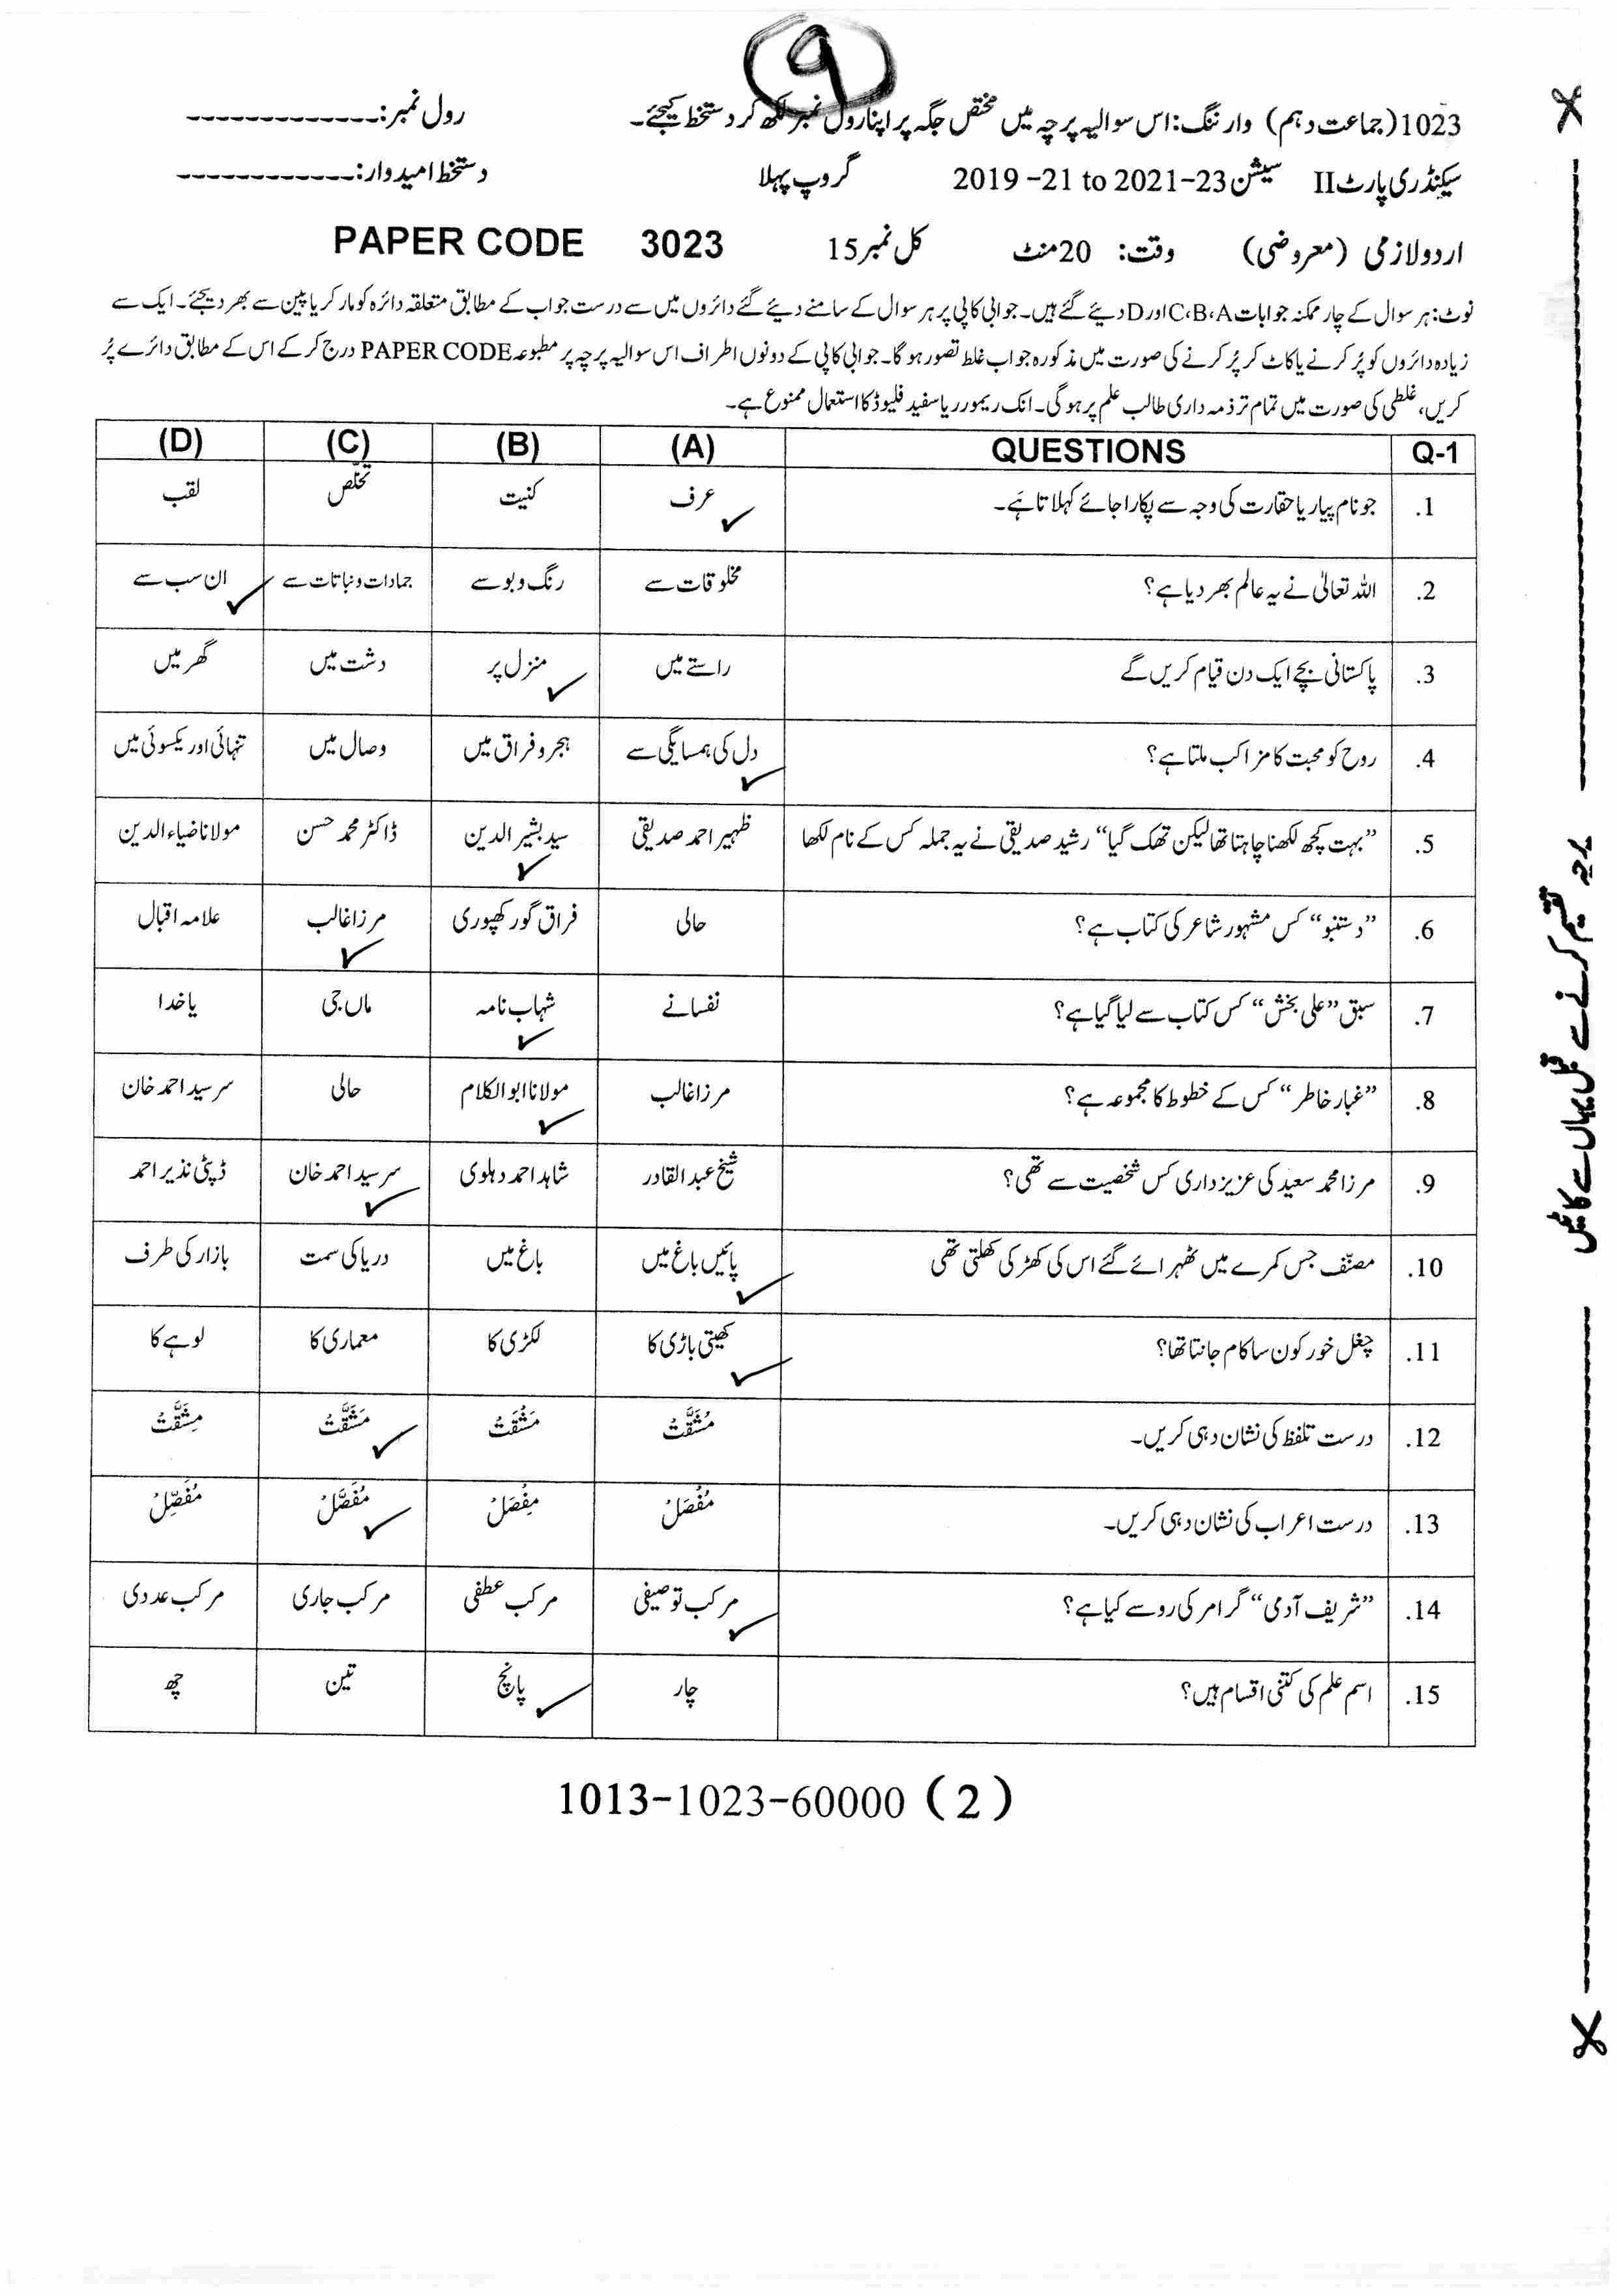 9
1023(جماعت دہم) وارننگ: اس سوالیہ پرچہ میں مختص جگہ پر اپنا رول نمبر لکھ کر دستخط کیجئے۔ رول نمبر:-------------
سیکنڈری پارٹ II سیشن 2019 -21 to 2021-23 گروپ پہلا دستخط امیدوار:------------
اردو لازمی (معروضی) وقت: 20منٹ کل نمبر 15 PAPER CODE 3023
نوٹ: ہر سوال کے چار ممکنہ جوابات C،B،A اور D دیئے گئے ہیں۔ جوابی کاپی پر ہر سوال کے سامنے دیئے گئے دائروں میں سے درست جواب کے مطابق متعلقہ دائرہ کو مارکر یا پین سے بھر دیجئے۔ ایک سے
زیادہ دائروں کو پُر کرنے یا کاٹ کر پُر کرنے کی صورت میں مذکورہ جواب غلط تصور ہوگا۔ جوابی کاپی کے دونوں اطراف اس سوالیہ پرچہ پر مطبوعہ PAPER CODE درج کر کے اس کے مطابق دائرے پُر
کریں، غلطی کی صورت میں تمام تر ذمہ داری طالب علم پر ہوگی۔ انک ریمور ر یا سفید فلیوڈ کا استعمال ممنوع ہے۔
Q-1 QUESTIONS (A) (B) (C) (D)
1. جو نام پیار یا حقارت کی وجہ سے پکارا جائے کہلاتا ہَے۔ عرف کنیت تخلّص لقب
2. اللہ تعالیٰ نے یہ عالم بھر دیا ہے؟ مخلوقات سے رنگ و بو سے جمادات و نباتات سے ان سب سے
3. پاکستانی بچے ایک دن قیام کریں گے راستے میں منزل پر دشت میں گھر میں
4. روح کو محبت کا مزا کب ملتا ہے؟ دل کی ہمسایگی سے ہجر و فراق میں وصال میں تنہائی اور یکسوئی میں
5. ”بہت کچھ لکھنا چاہتا تھا لیکن تھک گیا“ رشید صدیقی نے یہ جملہ کس کے نام لکھا ظہیر احمد صدیقی سید بشیر الدین ڈاکٹر محمد حسن مولانا ضیاء الدین
6. ”دستنبو“ کس مشہور شاعر کی کتاب ہے؟ حالی فراق گورکھپوری مرزا غالب علامہ اقبال
7. سبق ”علی بخش“ کس کتاب سے لیا گیا ہے؟ نفسانے شہاب نامہ ماں جی یا خدا
8. ”غبار خاطر“ کس کے خطوط کا مجموعہ ہے؟ مرزا غالب مولانا ابوالکلام حالی سر سید احمد خان
9. مرزا محمد سعید کی عزیز داری کس شخصیت سے تھی؟ شیخ عبدالقادر شاہد احمد دہلوی سر سید احمد خان ڈپٹی نذیر احمد
10. مصنّف جس کمرے میں ٹھہرائے گئے اس کی کھڑکی کھلتی تھی پائیں باغ میں باغ میں دریا کی سمت بازار کی طرف
11. چغل خور کون سا کام جانتا تھا؟ کھیتی باڑی کا لکڑی کا معماری کا لوہے کا
12. درست تلفظ کی نشان دہی کریں۔ مُشَقَّتْ مَشْقَتْ مَشَقَّتْ مِشَقَّتْ
13. درست اعراب کی نشان دہی کریں۔ مُفْصَلْ مِفْصَلْ مُفَصَّلْ مُفَصِّلْ
14. ”شریف آدمی“ گرامر کی رو سے کیا ہے؟ مرکب توصیفی مرکب عطفی مرکب جاری مرکب عددی
15. اسم علم کی کتنی اقسام ہیں؟ چار پانچ تین چھ
1013-1023-60000 (2)
پرچہ تقسیم کرنے سے قبل یہاں سے کاٹیں